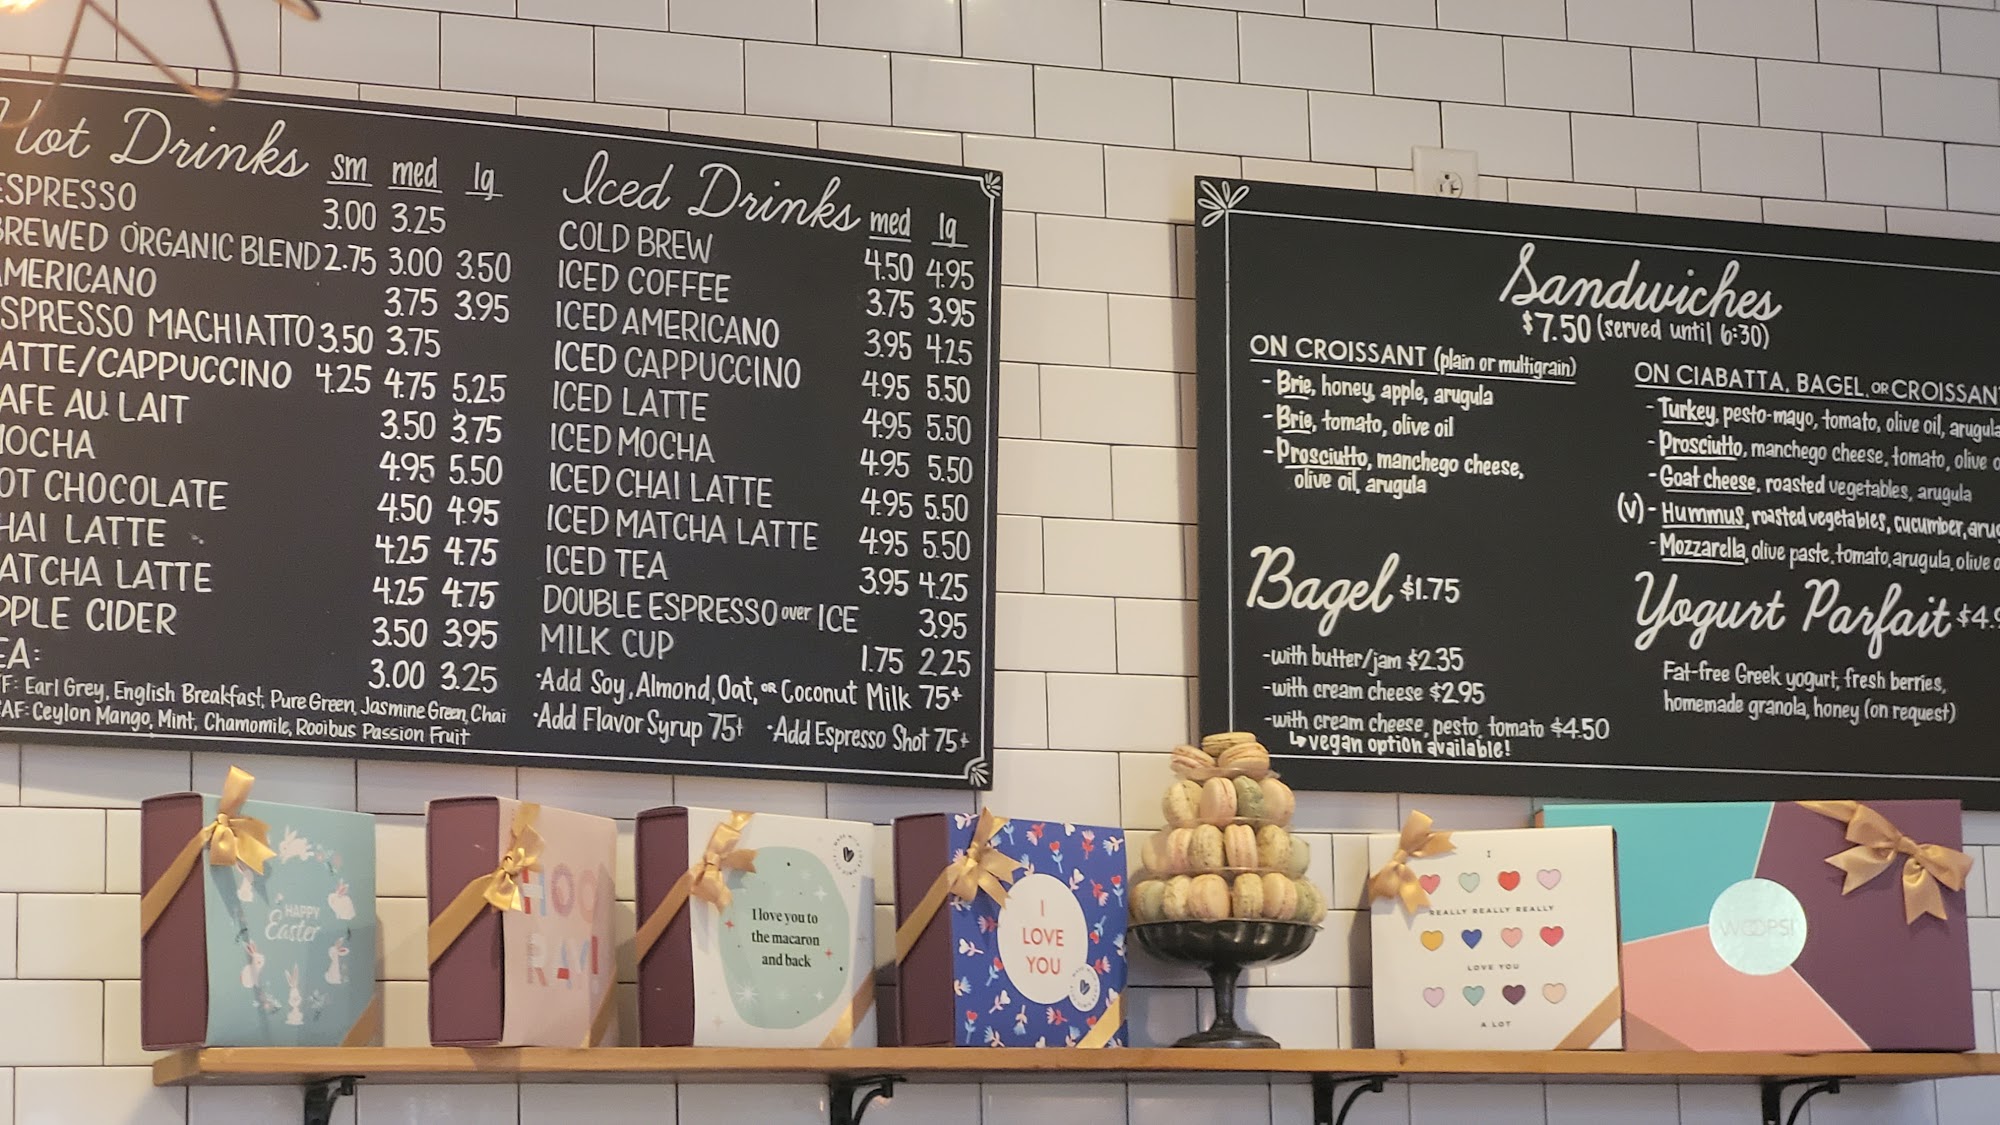 Hot Drinks sm med lg
ESPRESSO 3.00 3.25
BREWED ORGANIC BLEND 2.75 3.00 3.50
AMERICANO 3.75 3.95
ESPRESSO MACHIATTO 3.50 3.75
LATTE/CAPPUCCINO 4.25 4.75 5.25
CAFE AU LAIT 3.50 3.75
MOCHA 4.95 5.50
HOT CHOCOLATE 4.50 4.95
CHAI LATTE 4.25 4.75
MATCHA LATTE 4.25 4.75
APPLE CIDER 3.50 3.95
TEA: 3.00 3.25
F: Earl Grey, English Breakfast, Pure Green, Jasmine Green, Chai
CAF: Ceylon Mango, Mint, Chamomile, Rooibus Passion Fruit
Iced Drinks med lg
COLD BREW 4.50 4.95
ICED COFFEE 3.75 3.95
ICED AMERICANO 3.95 4.25
ICED CAPPUCCINO 4.95 5.50
ICED LATTE 4.95 5.50
ICED MOCHA 4.95 5.50
ICED CHAI LATTE 4.95 5.50
ICED MATCHA LATTE 4.95 5.50
ICED TEA 3.95 4.25
DOUBLE ESPRESSO over ICE 3.95
MILK CUP 1.75 2.25
·Add Soy, Almond, Oat, or Coconut Milk 75¢
·Add Flavor Syrup 75¢ ·Add Espresso Shot 75¢
Sandwiches
$7.50 (served until 6:30)
ON CROISSANT (plain or multigrain)
- Brie, honey, apple, arugula
- Brie, tomato, olive oil
- Prosciutto, manchego cheese,
olive oil, arugula
ON CIABATTA, BAGEL, OR CROISSANT
- Turkey, pesto-mayo, tomato, olive oil, arugula
- Prosciutto, manchego cheese, tomato, olive
- Goat cheese, roasted vegetables, arugula
(v) - Hummus, roasted vegetables, cucumber,
- Mozzarella, olive paste, tomato, arugula, olive
Bagel $1.75
-with butter/jam $2.35
-with cream cheese $2.95
-with cream cheese, pesto, tomato $4.50
↳vegan option available!
Yogurt Parfait
Fat-free Greek yogurt, fresh berries,
homemade granola, honey (on request)
HAPPY
Easter
HOO
RAY!
I love you to
the macaron
and back
I
LOVE
YOU
I
REALLY REALLY REALLY
LOVE YOU
A LOT
WOOPS!